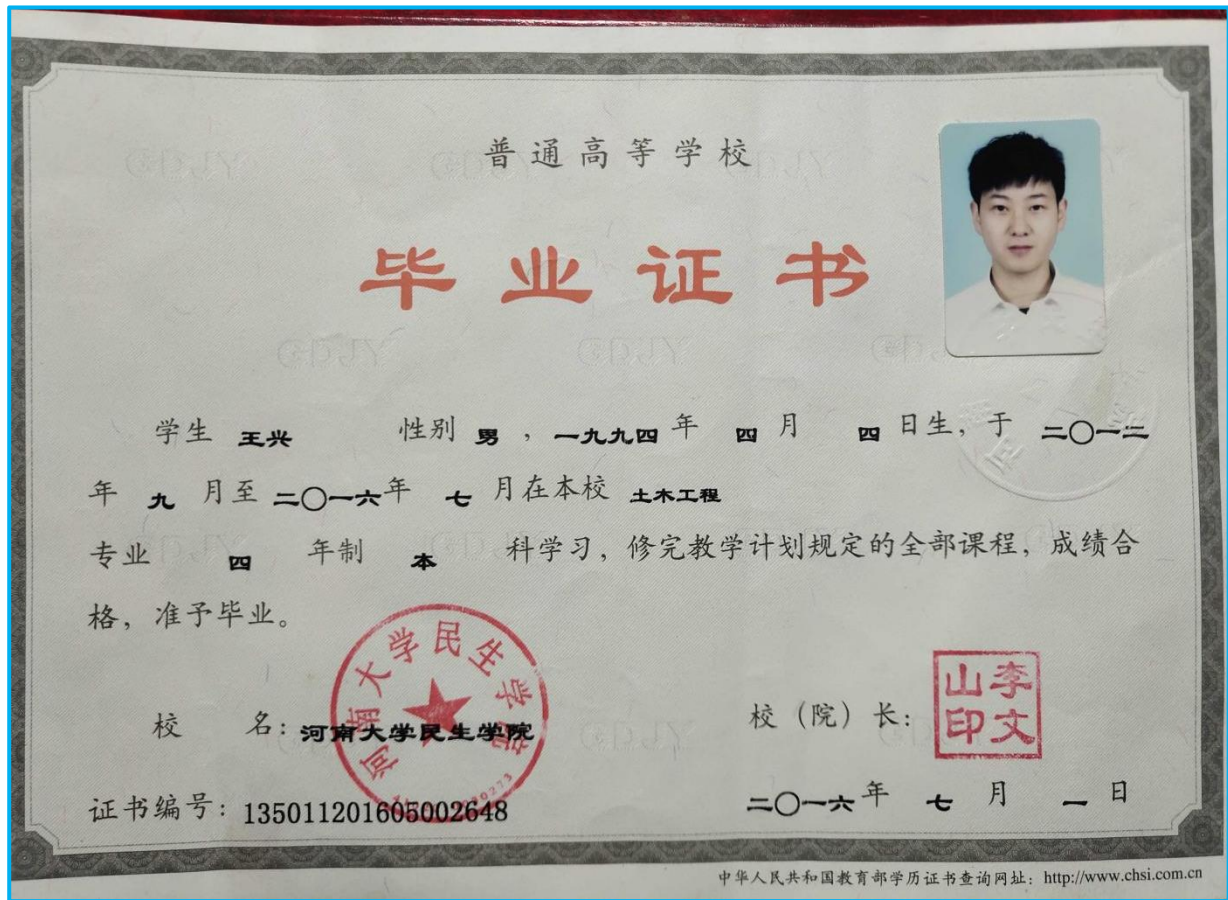 普通高等学校
毕业证书
学生 王兴 性别 男 ，一九九四 年 四 月 四 日生，于 二〇一二
年 九 月至 二〇一六 年 七 月在本校 土木工程
专业 四 年制 本 科学习，修完教学计划规定的全部课程，成绩合
格，准予毕业。
河南大学民生学院
校 名：河南大学民生学院
校（院）长：
李文山印
证书编号：135011201605002648
二〇一六 年 七 月 一 日
中华人民共和国教育部学历证书查询网址：http://www.chsi.com.cn